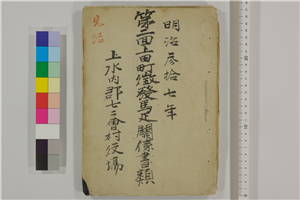 明治参拾七年
第二回上田町徴發馬疋關係書類
上水内郡七二會村役場